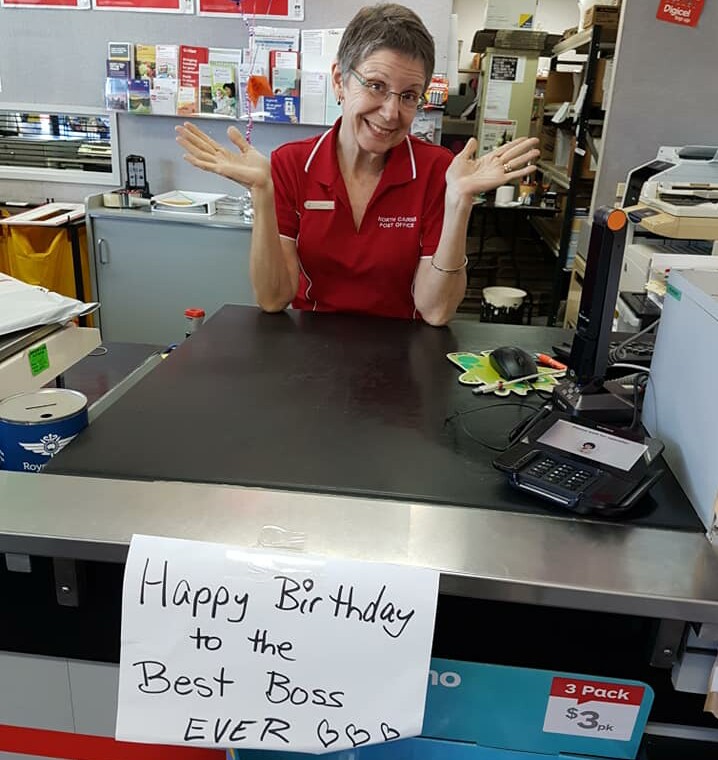 Digicel
NORTH CAIRNS
POST OFFICE
Roy
Happy Birthday
to the
Best Boss
EVER ♡♡♡
no
3 Pack
$3pk